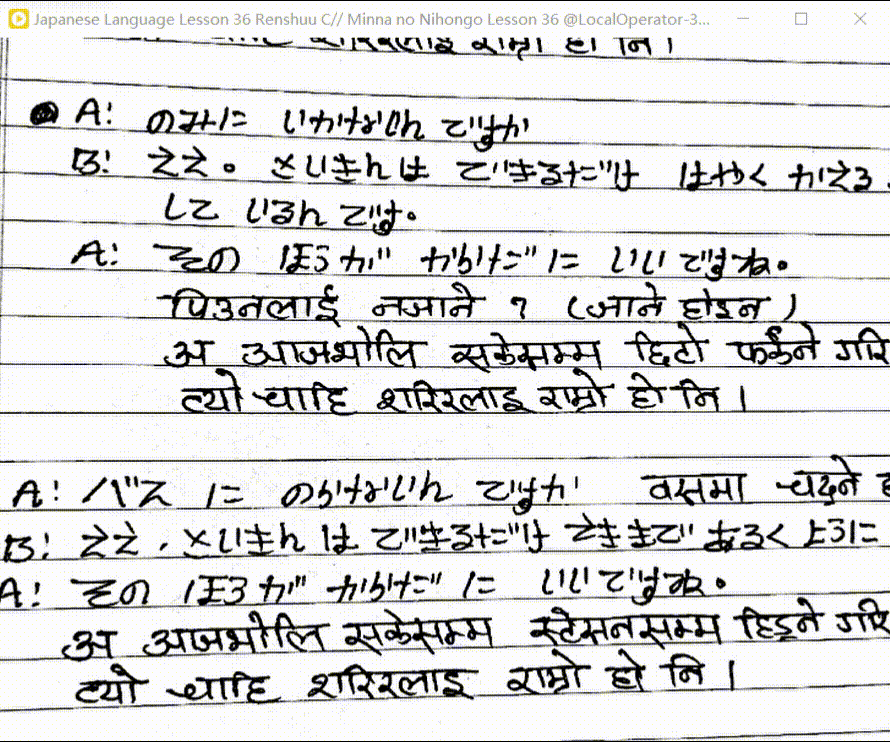 Japanese Language Lesson 36 Renshuu C// Minna no Nihongo Lesson 36 @LocalOperator-3...
शरिरलाइ राम्रो हो नि ।
A: のみに いかないん ですか
B: ええ。 さいきんは できるだけ はやく かえる
して いるん です。
A: その ほうが からだ に いいですね。
पिउनलाई नजाने ? (जाने होइन)
अ आजभोलि सकेसम्म छिटो फर्कने गरि
त्यो चाहि शरिरलाइ राम्रो हो नि ।
A: バス に のらないん ですか बसमा चढ्ने
B: ええ. さいきん は できるだけ えきまで あるく ように
A: その ほうが からだ に いいですね。
अ आजभोलि सकेसम्म स्टेसनसम्म हिड्ने गरि
त्यो चाहि शरिरलाइ राम्रो हो नि ।